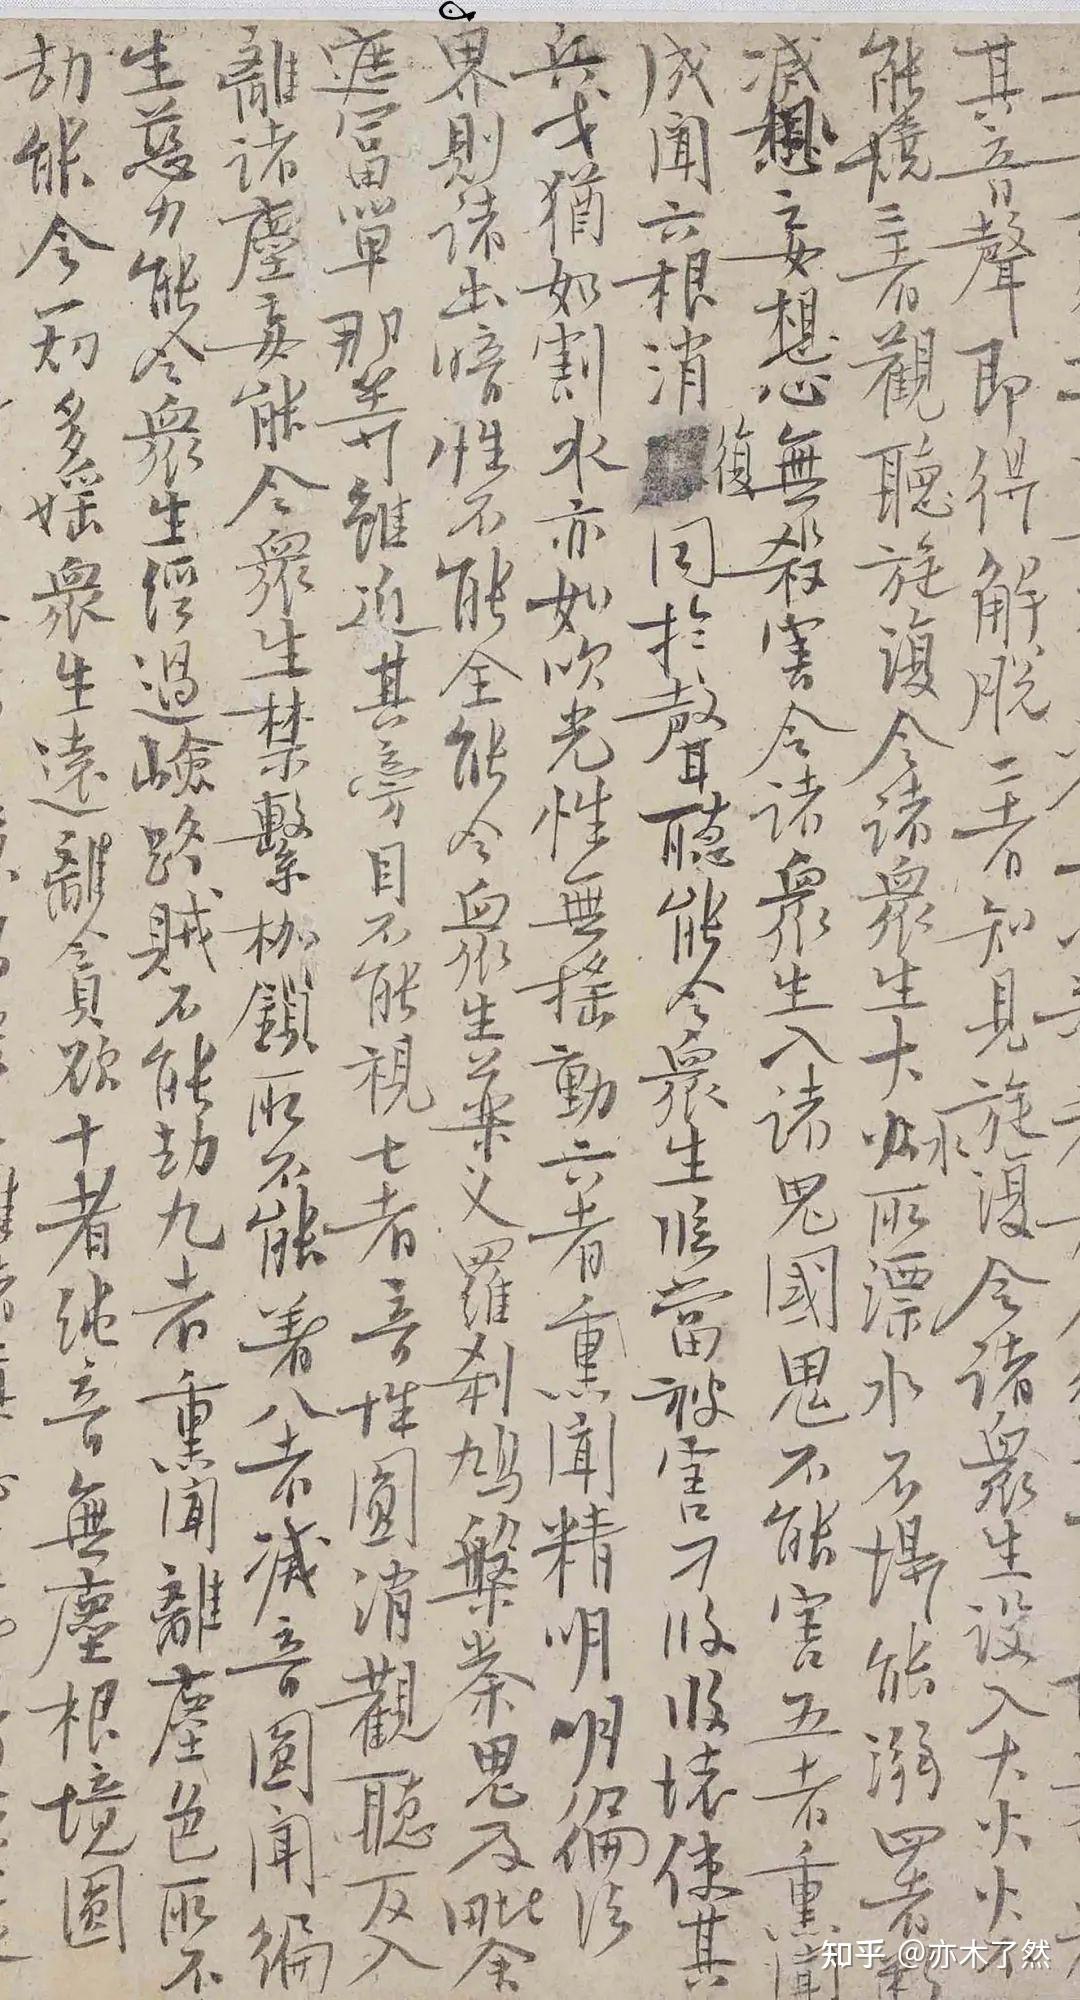 其音聲即得解脱二者知見旋澓令諸衆生設入大火火不
能燒三者觀聽旋澓令諸衆生大水所漂水不
能溺四者斷
滅想妄想心無殺害令諸衆生入諸鬼國鬼不能害五者熏聞
成聞六根消復同於聲聽能令衆生臨當被害刀段段壞使其
兵戈猶如割水亦如吹光性無摇動六者熏聞精明明徧法
界則諸幽暗性不能全能令衆生藥叉羅刹鳩槃荼鬼及毗舍
遮富單那等雖近其旁目不能視七者音性圓消觀聽反入
離諸塵妄能令衆生禁繫枷鎖所不能著八者滅音圓聞徧
生慈力能令衆生經過嶮路賊不能劫九者熏聞離塵色所不
劫能令一切多婬衆生遠離貪欲十者純音無塵根境圓
知乎 @亦木了然